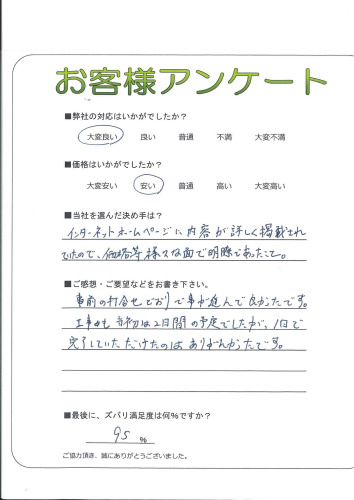 お客様アンケート
■弊社の対応はいかがでしたか？
大変良い 良い 普通 不満 大変不満
■価格はいかがでしたか？
大変安い 安い 普通 高い 大変高い
■当社を選んだ決め手は？
インターネットホームページに内容が詳しく掲載され
ていたので、価格等様々な面で明瞭であったこと。
■ご感想・ご要望などをお書き下さい。
事前の打合せどおりで事が進んで良かったです。
工事も当初は2日間の予定でしたが、1日で
完了していただけたのはありがたかったです。
■最後に、ズバリ満足度は何%ですか？
95 %
ご協力頂き、誠にありがとうございました。